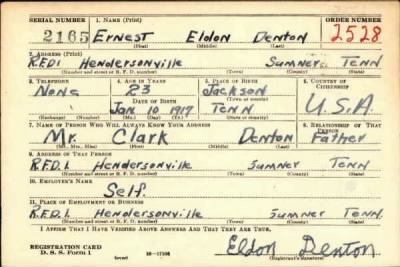 SERIAL NUMBER 1. NAME (Print) ORDER NUMBER
2165 Ernest Eldon Denton 2528
(First) (Middle) (Last)
2. ADDRESS (Print)
R.F.D.1 Hendersonville Sumner Tenn
(Number and street or R. F. D. number) (Town) (County) (State)
3. TELEPHONE 4. AGE IN YEARS 5. PLACE OF BIRTH 6. COUNTRY OF CITIZENSHIP
None 23 Jackson
DATE OF BIRTH (Town or county)
Jan 10 1917 Tenn U.S.A
(Mo.) (Day) (Yr.) (State or country)
7. NAME OF PERSON WHO WILL ALWAYS KNOW YOUR ADDRESS 8. RELATIONSHIP OF THAT PERSON
Mr. Clark Denton Father
(Mr., Mrs., Miss) (First) (Middle) (Last)
9. ADDRESS OF THAT PERSON
R.F.D.1. Hendersonville Sumner Tenn
(Number and street or R. F. D. number) (Town) (County) (State)
10. EMPLOYER'S NAME
Self.
11. PLACE OF EMPLOYMENT OR BUSINESS
R.F.D.1. Hendersonville Sumner Tenn.
(Number and street or R. F. D. number) (Town) (County) (State)
I AFFIRM THAT I HAVE VERIFIED ABOVE ANSWERS AND THAT THEY ARE TRUE.
REGISTRATION CARD
D. S. S. Form 1 Eldon Denton
(over) (Registrant's signature)